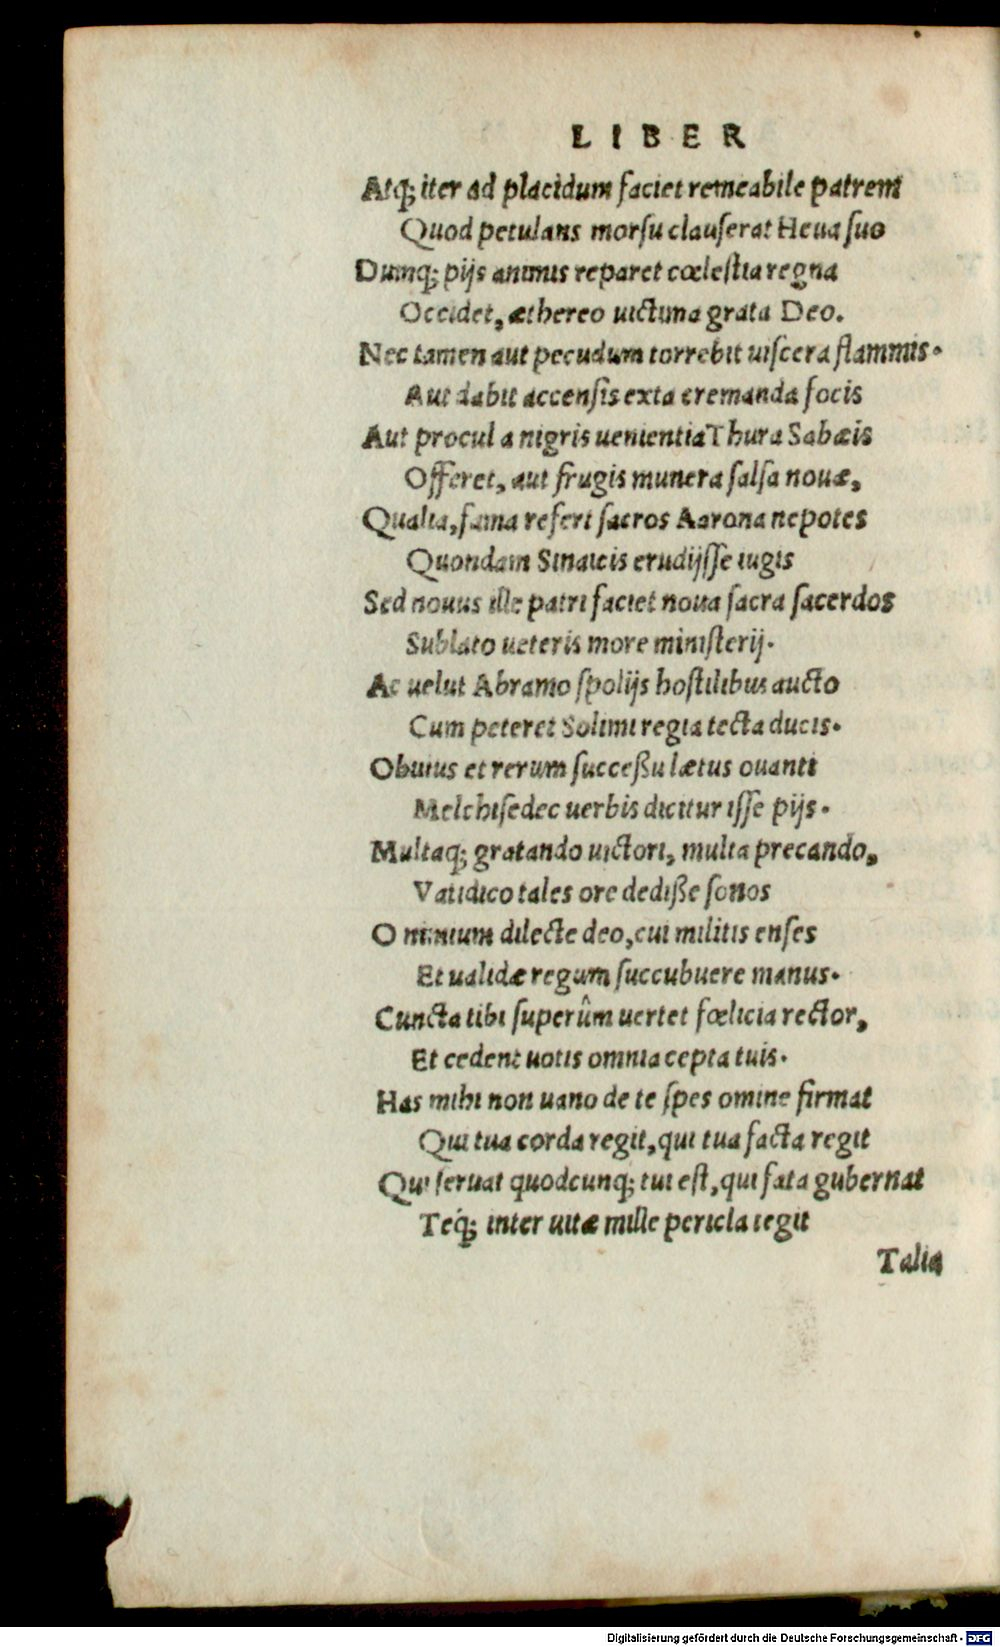 LIBER
Atq; iter ad placidum faciet remeabile patrem
Quod petulans morſu clauſerat Heua ſuo
Dumq; pijs animis reparet cœleſtia regna
Occidet, æthereo uictima grata Deo.
Nec tamen aut pecudum torrebit uiſcera flammis.
Aut dabit accenſis exta cremanda focis
Aut procul a nigris uenientia Thura Sabæis
Offeret, aut frugis munera ſalſa nouæ,
Qualia, fama refert ſacros Aarona nepotes
Quondam Sinaicis erudijſſe iugis
Sed nouus ille patri faciet noua ſacra ſacerdos
Sublato ueteris more miniſterij.
Ac uelut Abramo ſpolijs hoſtilibus aucto
Cum peteret Solimi regia tecta ducis.
Obuius et rerum ſucceßu lætus ouanti
Melchiſedec uerbis dicitur iſſe pijs.
Multaq; gratando uictori, multa precando,
Vatidico tales ore dediße ſonos
O nimium dilecte deo, cui militis enſes
Et ualidæ regum ſuccubuere manus.
Cuncta tibi ſuperûm uertet fœlicia rector,
Et cedent uotis omnia cepta tuis.
Has mihi non uano de te ſpes omine firmat
Qui tua corda regit, qui tua facta regit
Qui ſeruat quodcunq; tui eſt, qui fata gubernat
Teq́; inter uitæ mille pericla tegit
Talia
Digitalisierung gefördert durch die Deutsche Forschungsgemeinschaft - DFG